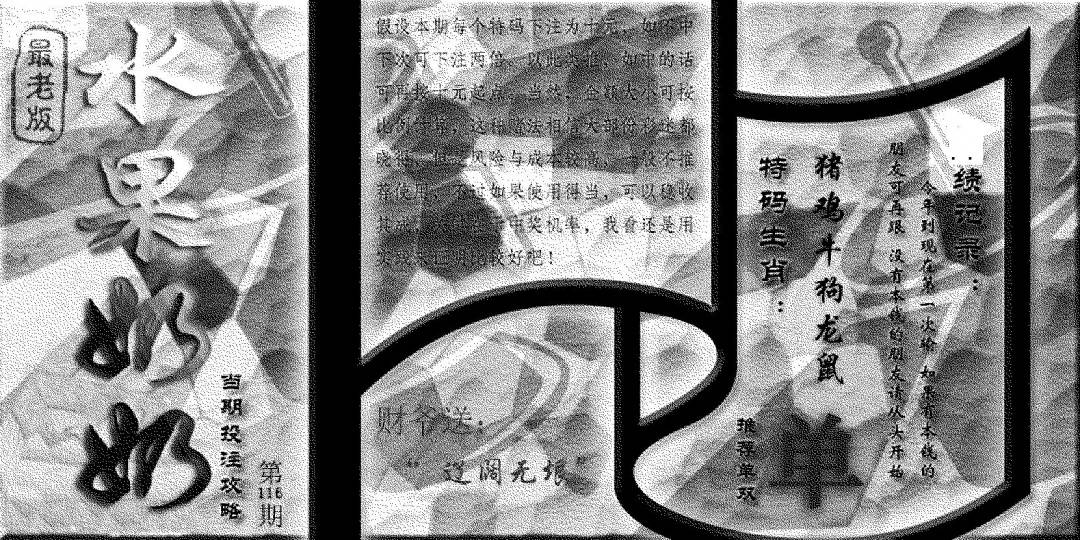 最老版
水果奶奶
当期投注攻略
第116期
假设本期每个特码下注为十元，如怀中
下次可下注两倍、以此类推，如中的话
可再按十元起点，当然、金额大小可按
风险与成本较高，一般不推
荐使用，不过如果使用得当，可以稳收
中奖机率，我看还是用
比较好吧！
财爷送：
“辽阔无垠”
绩记录：
今年到现在第一次输 如果有本钱的
朋友可再跟 没有本钱的朋友请从大开始
猪鸡牛狗龙鼠
特码生肖：
推荐单双
单